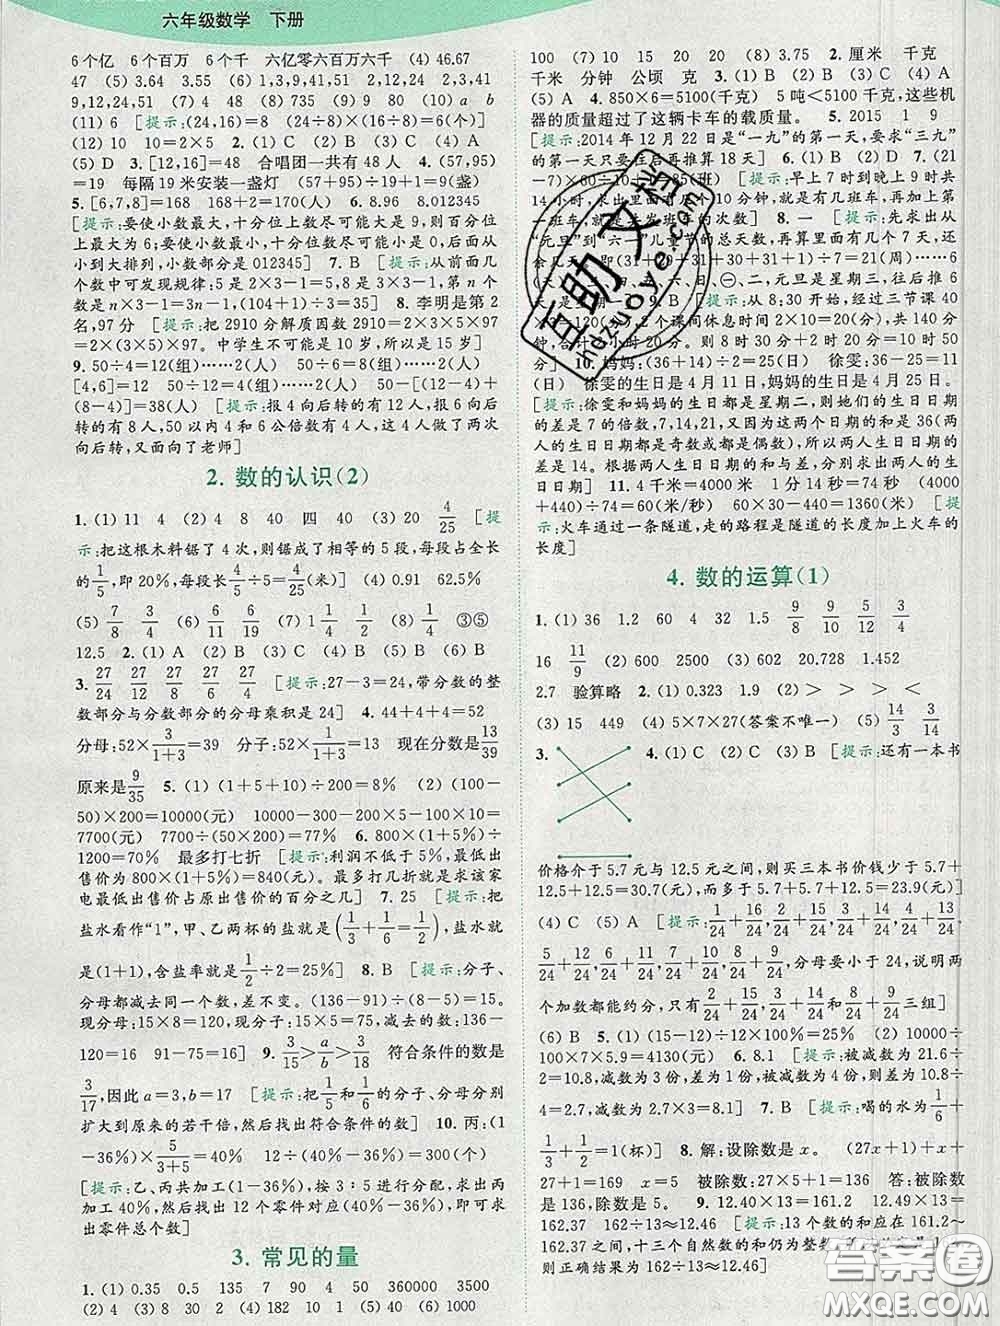 六年级数学 下册
6个亿 6个百万 6个千 六亿零六百万六千 (4) 46.67
47 (5) 3.64 3.55 (6) 1,3,9,41,51 2,12,24 2,3,41
9,12,24,51 (7) 4 48 (8) 735 (9) 800 (10) a b
(11) 6 [提示:(24,16)=8 (24÷8)×(16÷8)=6(个)]
(12) 10 10=2×5 2.(1) C (2) B (3) C (4) A
(5) D 3.[12,16]=48 合唱团一共有48人 4.(57,95)
=19 每隔19米安装一盏灯 (57+95)÷19+1=9(盏)
5.[6,7,8]=168 168+2=170(人) 6. 8.96 8.012345
[提示:要使小数最大,十分位上数尽可能大是9,则百分位
上最大为6;要使小数最小,十分位数尽可能小是0,后面从
小到大排列,小数部分是012345] 7. B [提示:从前面几
个数中可发现规律:5是2×3-1=5,8是3×3-1=8,则n个
数是n×3-1=3n-1,(104+1)÷3=35] 8. 李明是第2
名,97分 [提示:把2910分解质因数2910=2×3×5×97
=2×(3×5)×97=2×15×97.中学生不可能是10岁,所以是15岁]
9. 50÷4=12(组)……2(人) 50÷6=8(组)……2(人)
[4,6]=12 50÷12=4(组)……2(人) 50-[(12-4)+
(8-4)]=38(人) [提示:报4向后转的有12人,报6向后
转的有8人,50以内4和6公倍数有4人,这4人做了两次
向后转,又面向了老师]
2. 数的认识(2)
1.(1) 11 4 (2) 4 8 40 四 40 (3) 20 4/25 [提
示:把这根木料锯了4次,则锯成了相等的5段,每段占全长
的1/5,即20%,每段长4/5÷5=4/25(米)] (4) 0.91 62.5%
(5) 7/8 4/4 (6) 6/11 6/19 (7) 1 1/4 1/2 (8) > ③⑤
12.5 2.(1) A (2) B (3) A (4) C (5) B (6) B
3. 27/24 27/12 27/8 27/6 27/4 [提示:27-3=24,带分数的整
数部分与分数部分的分母乘积是24] 4. 44+4+4=52
分母:52×3/(1+3)=39 分子:52×1/(1+3)=13 现在分数是13/39
原来是9/35 5.(1) (1+5+10)÷200=8% (2) (100-
50)×200=10000(元) 10000-300-200×5-100×10=
7700(元) 7700÷100=77(元) 6. 800×(1+5%)÷
1200=70% 最多打七折 [提示:利润不低于5%,最低出
售价为800×(1+5%)=840(元).最多几折就是求该家
电最低出售价占原出售价的百分之几] 7. 25 [提示:把
盐水看作“1”,甲、乙两杯的盐就是(1/3+1/6)=1/2,全部水
就是(1+1),含盐率就是1/2÷2=25%] 8. B [提示:分子、
分母都减去同一个数,差不变.(136-91)÷(8-5)=15.
现分母:15×8=120,现分子:15×5=75,减去的数:136-
120=16 91-75=16] 9. 3/15>a/b>3/18 符合条件的数是
3/17,因此a=3,b=17 [提示:把1/5和1/6的分子、分母分别
扩大到原来的若干倍,然后找出符合条件的分数] 10. 丙:(1
-36%)×5/(3+5)=40% 12÷(40%-36%)=300(个)
[提示:乙、丙共加工(1-36%),按3∶5进行分配,求出丙
加工的40%,找出12个零件对应(40%-36%),即可求
出零件总个数]
3. 常见的量
1.(1) 0.35 0.5 135 7 90 4 50 360000 3500
(2) 4 (3) 8 (4) 182 10 1 (5) 40 (6) 1000
100 (7) 10 15 20 20 (8) 3.75 2. 厘米 千克
千米 分钟 公顷 克 3.(1) B (2) B (3) C (4) A
(5) A 4. 850×6=5100(千克) 5吨<5100千克,这些机
器的质量超过了这辆卡车的载质量. 5. 2015 1 9
[提示:2014年12月22日是“一九”的第一天,要求“三九”
的第一天只要往后再推算18天] 6.(1) B (2) D 7.(21
-7)×60÷10+1=85(班) [提示:早上7时到晚上9时共
14小时,求出里面有几个10分钟,就是有几班车,再加上第
一班车,就是共发班车的次数] 8. 一 [提示:先求出从
“元旦”到“六一”儿童节的总天数,再算里面有几个7天,还
余几天.(31+29+31+30+31+1)÷7=21(周)……
一、二、三、四、五、六、日、㊀,二.元旦是星期三,往后推6
天是星期一] 9. [提示:从8:30开始,经过三节课40
×3=120(分),2个课间休息时间2×10=20(分),共140分
钟,合计2小时20分.则8时30分+2时20分=10时50
分] 10. 妈妈:(36+14)÷2=25(日) 徐雯:36-25=11
(日) 徐雯的生日是4月11日,妈妈的生日是4月25日.
[提示:徐雯和妈妈的生日都是星期二,则她们的生日日期
的差是7的倍数,7,14,21,又因为两人生日日期的和是36(两
人的生日日期都是奇数或都是偶数),所以两人生日日期的
差是14。根据两人生日日期的和与差,分别求出两人的生日
日期] 11. 4千米=4000米 1分14秒=74秒 (4000
+440)÷74=60(米/秒) 60×30-440=1360(米) [提
示:火车通过一条隧道,走的路程是隧道的长度加上火车的
长度]
4. 数的运算(1)
1.(1) 36 1.2 60 4 32 1.5 9/8 9/10 5/8
16 11/9 (2) 600 2500 (3) 602 20.728 1.452
2.7 验算略 2.(1) 0.323 1.9 (2) > > > <
(3) 15 449 (4) 5×7×27(答案不唯一) (5) 14/3 3/14
3. 4.(1) C (2) C (3) B [提示:还有一本书
价格介于5.7元与12.5元之间,则买三本书价钱少于5.7+
12.5+12.5=30.7(元),而多于5.7+5.7+12.5=23.9(元)]
(4) C (5) A [提示:1/24+16/24,2/24+15/24,3/24+14/24,4/24+13/24,
5/24+12/24,6/24+11/24,7/24+10/24,8/24+9/24,分母要小于24,说明两
个加数都能约分,只有2/24+15/24,3/24+14/24和8/24+9/24三组]
(6) B 5.(1) (15-12)÷12×100%=25% (2) 10000÷
100×7×5.9=4130(元) 6. 8.1 [提示:被减数为21.6÷
2=10.8,减数为3份,差为1份,被减数为4份,则差为10.8÷
4=2.7,减数为2.7×3=8.1] 7. B [提示:喝的水为1/6+
1/3+1/2=1(杯)] 8. 解:设除数是x. (27x+1)+x+
27+1=169 x=5 被除数:27×5+1=136 答:被除数
是136,除数是5. 9. 12.40×13=161.2 12.49×13=
162.37 162÷13≈12.46 [提示:13个数的和应在161.2~
162.37之间,十三个自然数的和仍为整数,
则正确结果为162÷13≈12.46]
互助文档
huzhuoye.com
答案圈
MXQE.COM